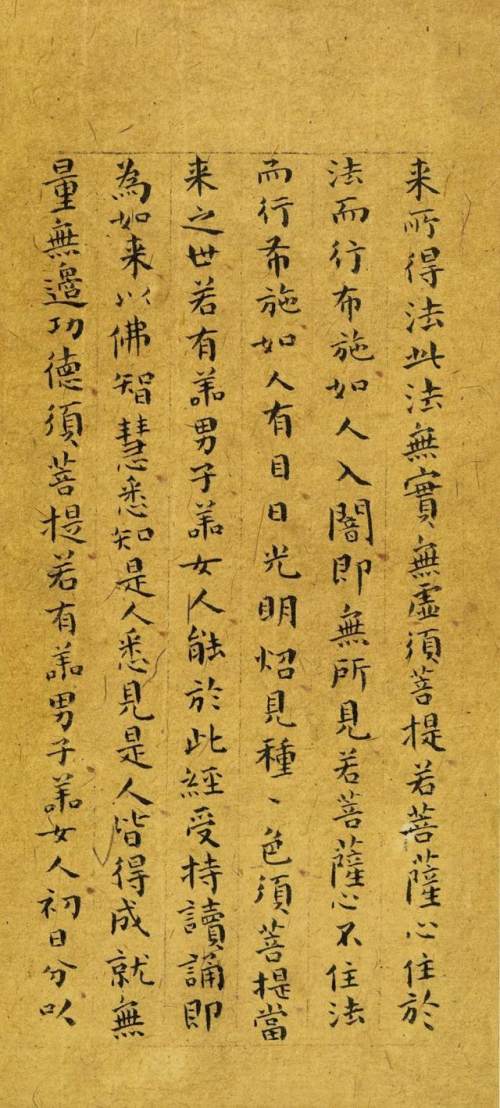 来所得法此法無實無虛須菩提若菩薩心住於
法而行布施如人入闇即無所見若菩薩心不住法
而行布施如人有目日光明炤見種〻色須菩提當
来之世若有善男子善女人能於此經受持讀誦即
為如来以佛智慧悉知是人悉見是人皆得成就無
量無邊功德須菩提若有善男子善女人初日分以